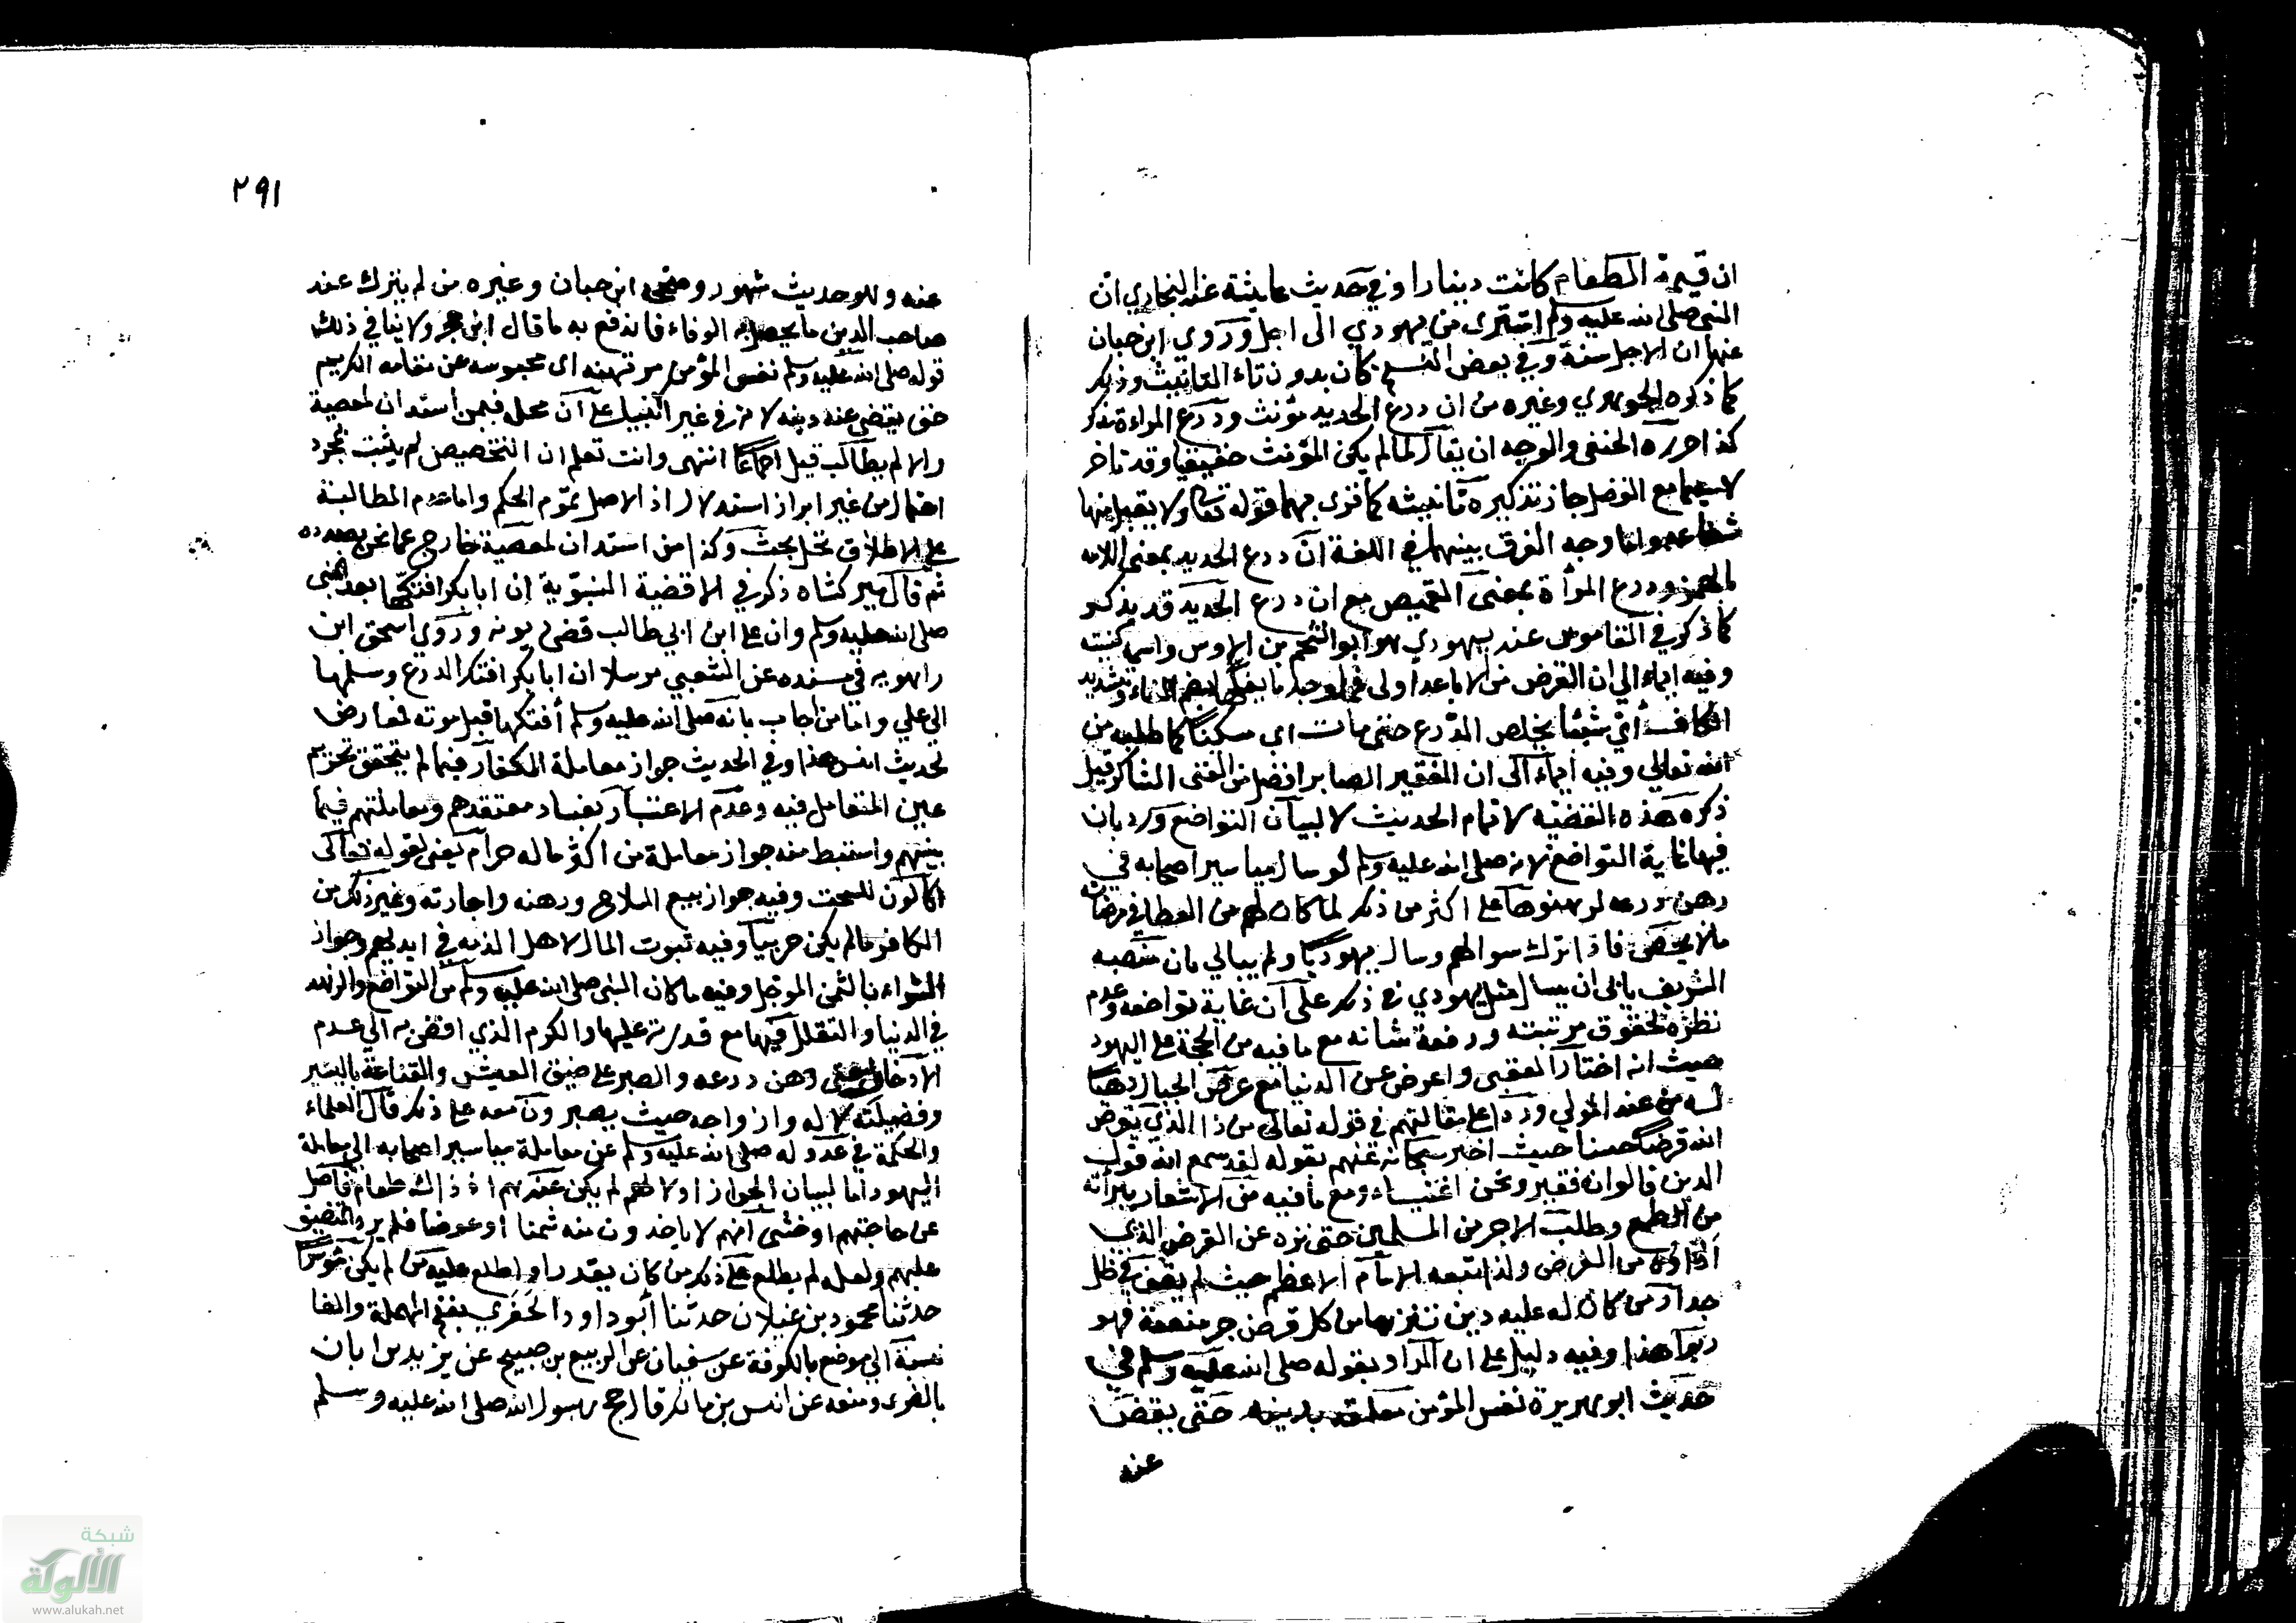 ان قيمة الطعام كانت دينارا وفي حديث عايشة عند البخاري ان
النبي صلى الله عليه وسلم اشترى من يهودي الى اجل وروي ابن حبان
عنها ان الاجل سنة وفي بعض النسخ كان بدون تاء التانيث وذكر
كما ذكره الجوهري وغيره من ان درع الحديد مؤنث ودرع المراءة مذكر
كذا حرره الحنفي والوجه ان يقال لما لم يكن المؤنث حقيقيا وقد تاخر
لا سيما مع الفصل جاز تذكيره وتانيثه كما قرى بهما قوله تعالى ولا يقبل منها
شفاعة واما وجه الفرق بينهما في اللغة ان درع الحديد بمعنى اللامه
بالهمز ودرع المرأة بمعنى القميص مع ان درع الحديد قد يذكر
كما ذكر في القاموس عند يهودي هو ابو الشحم من الاوس واسمه كنيته
وفيه ايماء الى ان القرض من الاباعد اولى فما وجد ما يفكها بضم الفاء وتشديد
الكاف أي شيئا يخلص الدرع حتى مات اي مسكينا كما طلبه من
الله تعالى وفيه ايماء الى ان الفقير الصابر افضل من الغنى الشاكر قيل
ذكره هذه القضية لاتمام الحديث لا لبيان التواضع ورد بان
فيها غاية التواضع لانه صلى الله عليه وسلم لو سال مياسير اصحابه في
رهن درعه لرهنوها على اكثر من ذلك لما كان لهم من العطا في مرضاته
ملا يحصى فاذا ترك سوالهم وسال يهوديا ولم يبالي بان منصبه
الشريف يابى ان يسال مثل يهودي في ذلك على ان غاية تواضعه وعدم
نظره لحقوق مرتبته ورفعة شانه مع ما فيه من الحجة على اليهود
حيث انه اختار العقبى واعرض عن الدنيا مع عرض الجبال ذهبا
له من عند المولي وردا على مقالتهم في قوله تعالى من ذا الذي يقرض
الله قرضا حسنا حيث اخبر سبحانه عنهم بقوله لقد سمع الله قول
الذين قالوا ان الله فقير ونحن اغنياء ومع ما فيه من الاشعار ببراته
من الطمع وطلب الاجر من المسلمين حتى نزه عن القرض الذي
من القرض ولذا تبعه الامام الاعظم حيث لم يقف في ظل
جدار من كان له عليه دين تنزها من كل قرض جر منفعة فهو
ربوا هذا وفيه دليل على ان المراد بقوله صلى الله عليه وسلم في
حديث ابو هريرة نفس المؤمن معلقة بدينه حتى يقضى
عنه
٢٩١
عنه وللو حديث شهور وصححه ابن حبان وغيره من لم يترك عند
صاحب الدين ما يحصل به الوفاء فاندفع به ما قال ابن حجر ولا ينافي ذلك
قوله صلى الله عليه وسلم نفس المؤمن مرتهنه اى محبوسه عن مقامه الكريم
حتى يقضي عنه دينه لانه في غير الانبياء على ان محله فيمن استدان لمعصية
والا لم يطالب قيل اجماعا انتهى وانت تعلم ان التخصيص لم يثبت بمجرد
احتمال من غير ابراز استدلال اذ الاصل عموم الحكم واما عدم المطالبة
على الاطلاق محل بحث وكذا من استدان لمعصية خارج عما نحن بصدده
ثم قال ميركشاه ذكر في الاقضية النبوية ان ابا بكر افتكها بعد النبي
صلى الله عليه وسلم وان علي ابن ابي طالب قضى ديونه وروي اسحق ابن
راهويه في مسنده عن الشعبي مرسلا ان ابا بكر افتك الدرع وسلمها
الى علي واما من اجاب بانه صلى الله عليه وسلم أفتكها قبل موته فمعارض
لحديث انس هذا وفي الحديث جواز معاملة الكفار فيما لم يتحقق تحريم
عين المتعامل فيه وعدم الاعتبار بفساد معتقدهم ومعاملتهم فيما
بينهم واستنبط منه جواز معاملة من اكثر ماله حرام يعنى لقوله تعالى
اكالون للسحت وفيه جواز بيع السلاح ورهنه واجارته وغير ذلك من
الكافر ما لم يكن حربيا وفيه ثبوت المال لاهل الذمه في ايديهم وجواز
الشراء بالثمن المؤجل وفيه ما كان النبي صلى الله عليه وسلم من التواضع والزهد
في الدنيا والتقلل فيها مع قدرته عليها والكرم الذي افضى به الي عدم
الادخار حتى رهن درعه والصبر على ضيق العيش والقناعة باليسير
وفضيلته لاله وازواجه حيث يصبرون معه على ذلك قال العلماء
والحكمة في عدوله صلى الله عليه وسلم عن معاملة مياسير اصحابه الى معاملة
اليهود اما لبيان الجواز او لانهم لم يكن عندهم اذ ذاك طعام فاضل
عن حاجتهم او خشي انهم لا ياخذون منه ثمنا او عوضا فلم يرد التضييق
عليهم ولعله لم يطلع على ذلك من كان يقدر او اطلع عليه من لم يكن موسرا
حدثنا محمود بن غيلان حدثنا أبو داود الحفري بفتح المهملة والفا
نسبة الى موضع بالكوفة عن سفيان عن الربيع بن صبيح عن يزيد بن ابان
بالصرف ومنعه عن انس بن مالك قال حج رسول الله صلى الله عليه وسلم
شبكة
الألوكة
www.alukah.net